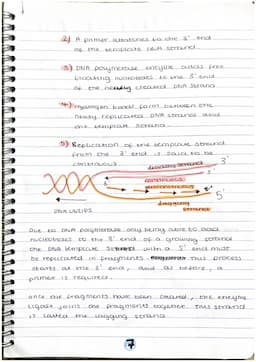 2) A primer attatches to the 3' end
of the template DNA strand.
3) DNA polymerase enzyme adds free
floating nucleotides to the 3' end
of the newly created DNA strand
4) Hydrogen bonds form between the
newly replicated DNA strand and
the template strand.
5) Replication of the template strand
from the 3' end is said to be
continuous
leading strand
3'
5'
lagging
strand
DNA unzips
Due to DNA polymerase only being able to add
nucleotides to the 3' end of a growing strand
the DNA template strand with a 5' end must
be replicated in fragments. This process
starts at the 5' end, and as before, a
primer is required.
Once the fragments have been created, the enzyme
Ligase joins the fragments together. This strand
is called the lagging strand.
7